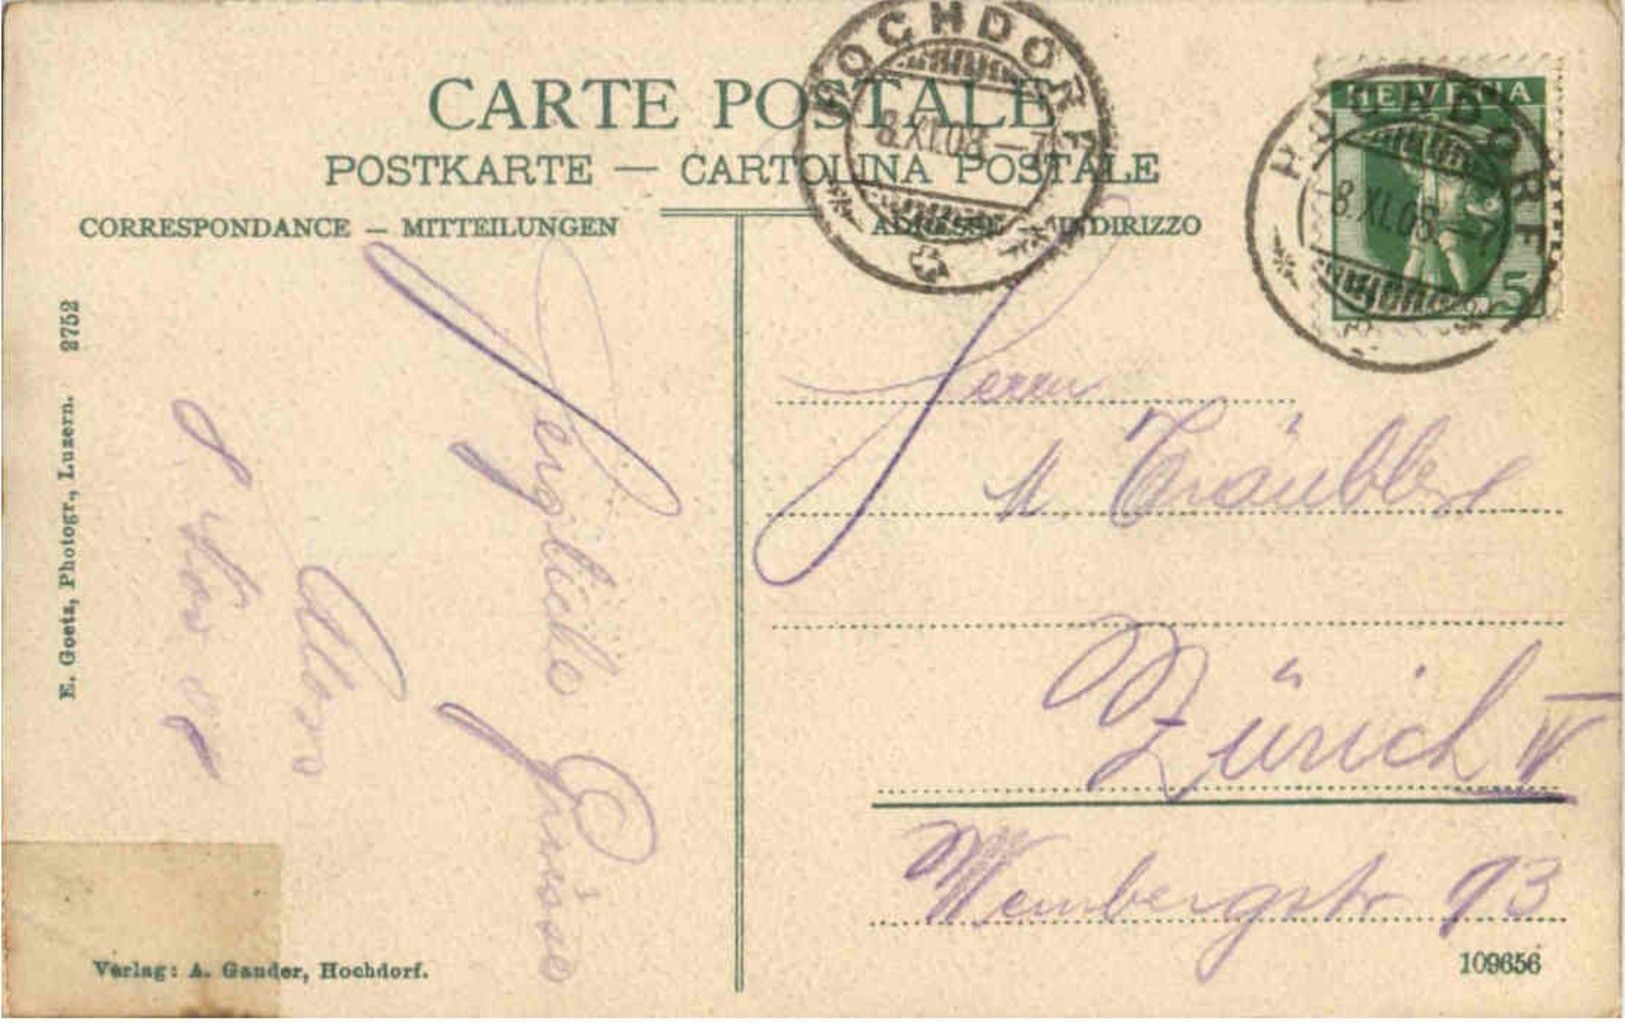 CARTE POSTALE
POSTKARTE — CARTOLINA POSTALE
CORRESPONDANCE — MITTEILUNGEN
ADRESSE — INDIRIZZO
HOCHDORF
8.XI.08 – 7
HELVETIA
5
HOCHDORF
8.XI.08
Herzliche Grüsse
8 Nov 08
Herrn
Zürich IV
Weinbergstr 93
E. Goetz, Photogr., Luzern. 2752
Verlag: A. Gander, Hochdorf.
109656